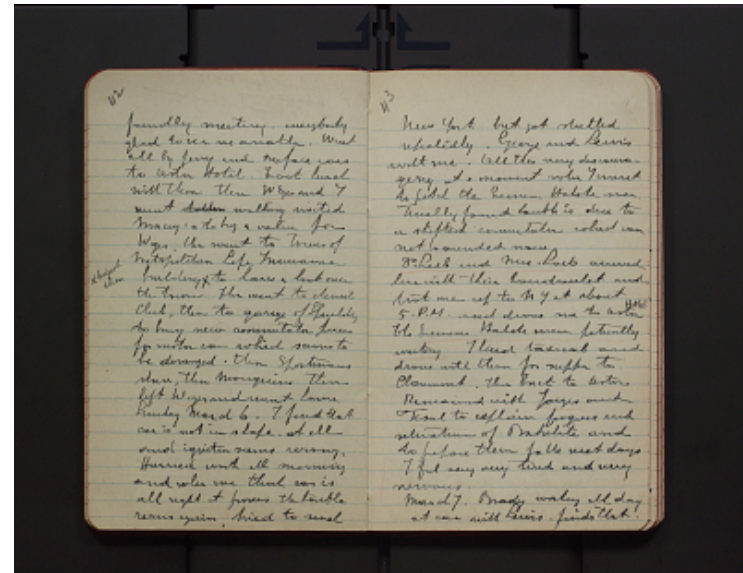 42
friendly meeting. everybody
glad to see us arrive. Went
all by ferry and surface cars
to Astor Hotel. Took lunch
with them then Wyss and I
went walking visited
Macy's to buy a valise for
Wyss. We went to Tower of
Metropolitan Life Insurance
building x to have a look over
the tower. Then went to
Club, then to garage of Spaulding
to buy new commutator
for motor car which seems to
be deranged. then Sportsmans
show, then Then
left Wyss and went home
Sunday March 6. I find that
car is not in shape at all
and ignition seems wrong.
Hurried work all morning
and when we think car is
all right it proves the trouble
again, tried to send
43
New York but got stalled
repeatedly. George and Lewis
with me. All this very discoura-
ging at a moment when I need
to the Lemmon, Halske men.
Finally found trouble is due to
a shifted commutator which can
not be mended now.
Dr. Loeb and Mrs. Loeb arrived
here with their and
took me up to N.Y. at about
5 P.M. and drove me to Astor Hotel
the Siemens Halske men patiently
waiting. I hired taxicab and
drove with them for supper to
Claremont, then back to Astor.
Remained with and
to explain progress and
situation of Bakelite and
to prepare them for next days
I feel very very tired and very
nervous
March 7. Brady working all day
at car with Lewis. finds that